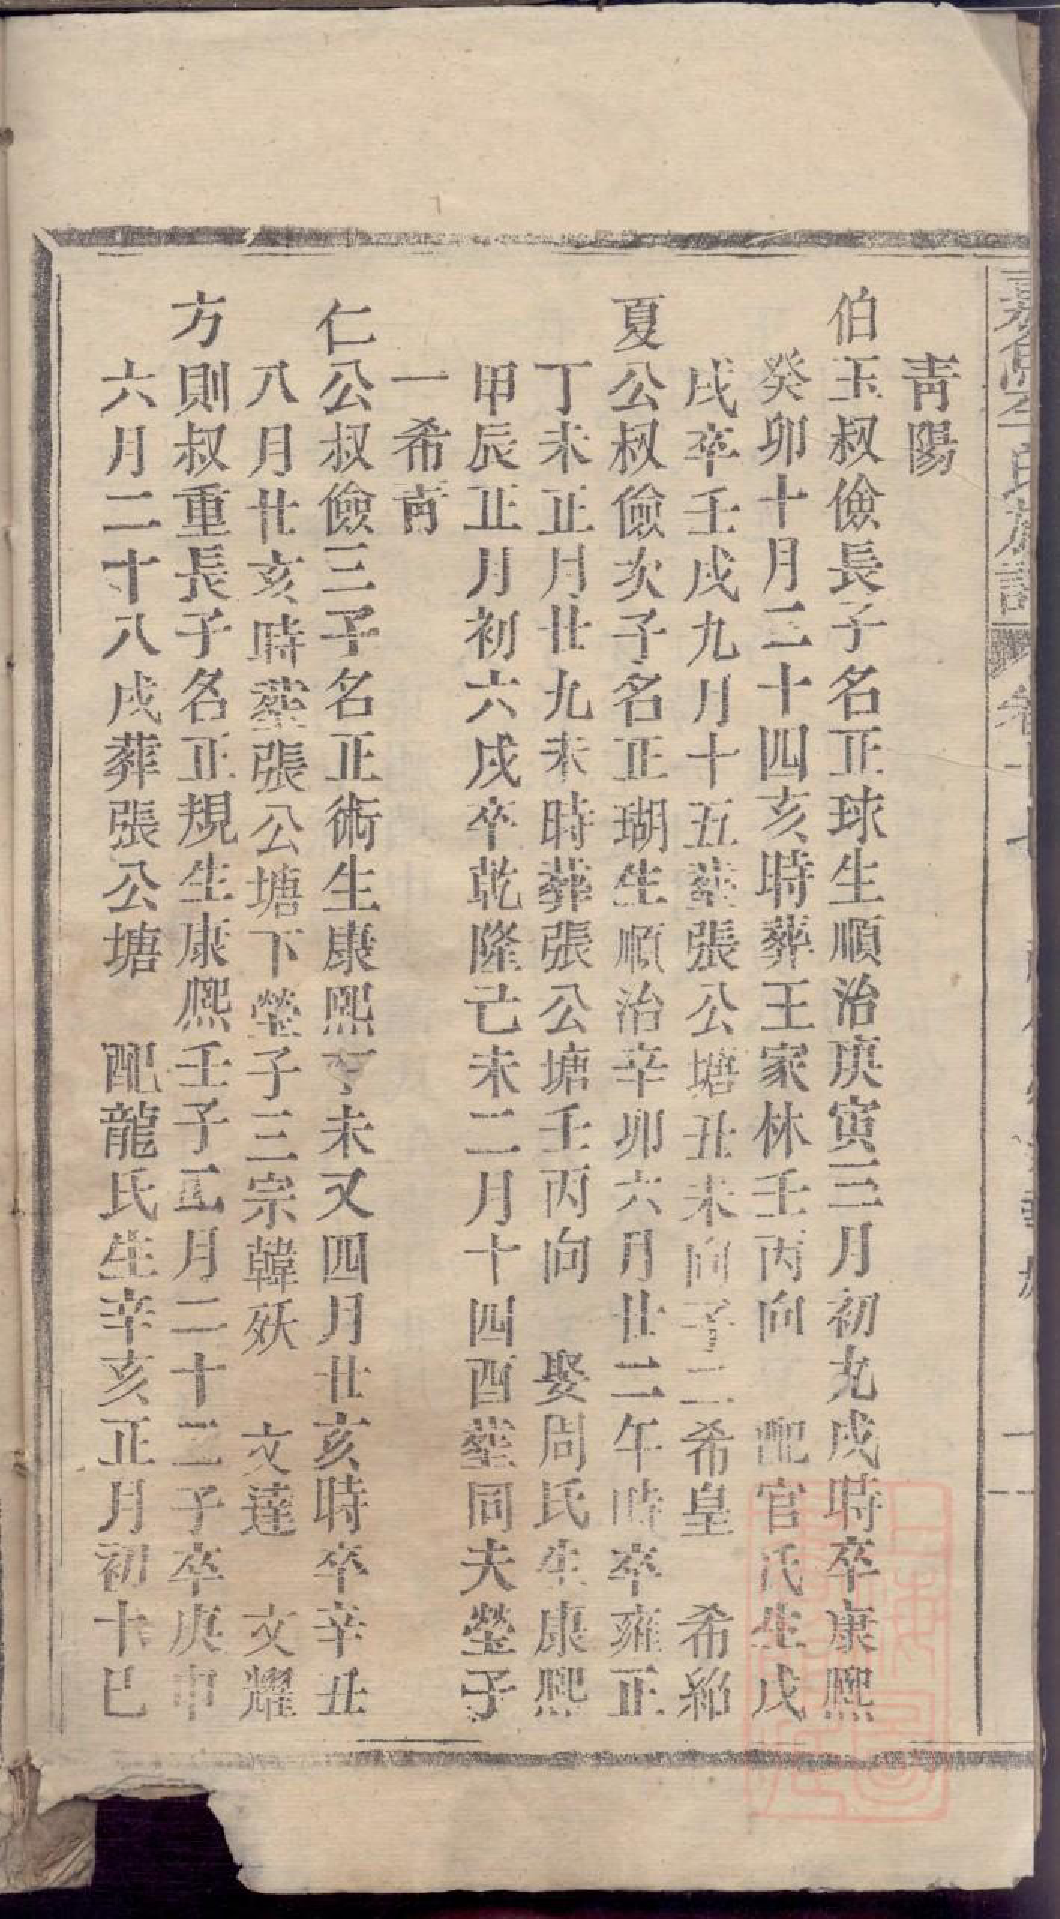 青陽
伯玉叔儉長子名正球生順治庚寅三月初九戌時卒康熙
癸卯十月二十四亥時葬王家林壬丙向 配官氏生戊
戌卒壬戌九月十五塟張公塘丑未向子二希皇 希紹
夏公叔儉次子名正瑚生順治辛卯六月廿二午時卒雍正
丁未正月廿九未時葬張公塘壬丙向 娶周氏生康熙
甲辰正月初六戌卒乾隆己未二月十四酉塟同夫塋子
一希
仁公叔儉三子名正術生康熙未又四月廿亥時卒辛丑
八月廿亥時塟張公塘下塋子三宗韓 文達 文耀
方則叔重長子名正規生康熙壬子月二十二子卒庚申
六月二十八戌葬張公塘 配龍氏生辛亥正月初十巳
氏族譜